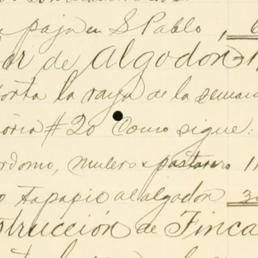 paja en S Pablo, 6
or de Algodon
orta la raya de la seman
oria #20 Como sigue:
rdomo, mulero x pastor 1
o tapapio al algodon 3
strucción de Finca